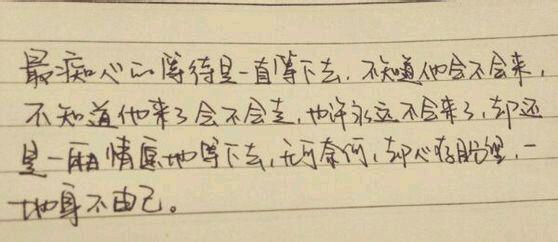 最痴心的等待是一直等下去，不知道他会不会来，
不知道他来了会不会走，也许永远不会来了，却还
是一厢情愿地等下去，无可奈何，却心存盼望，一
地身不由己。